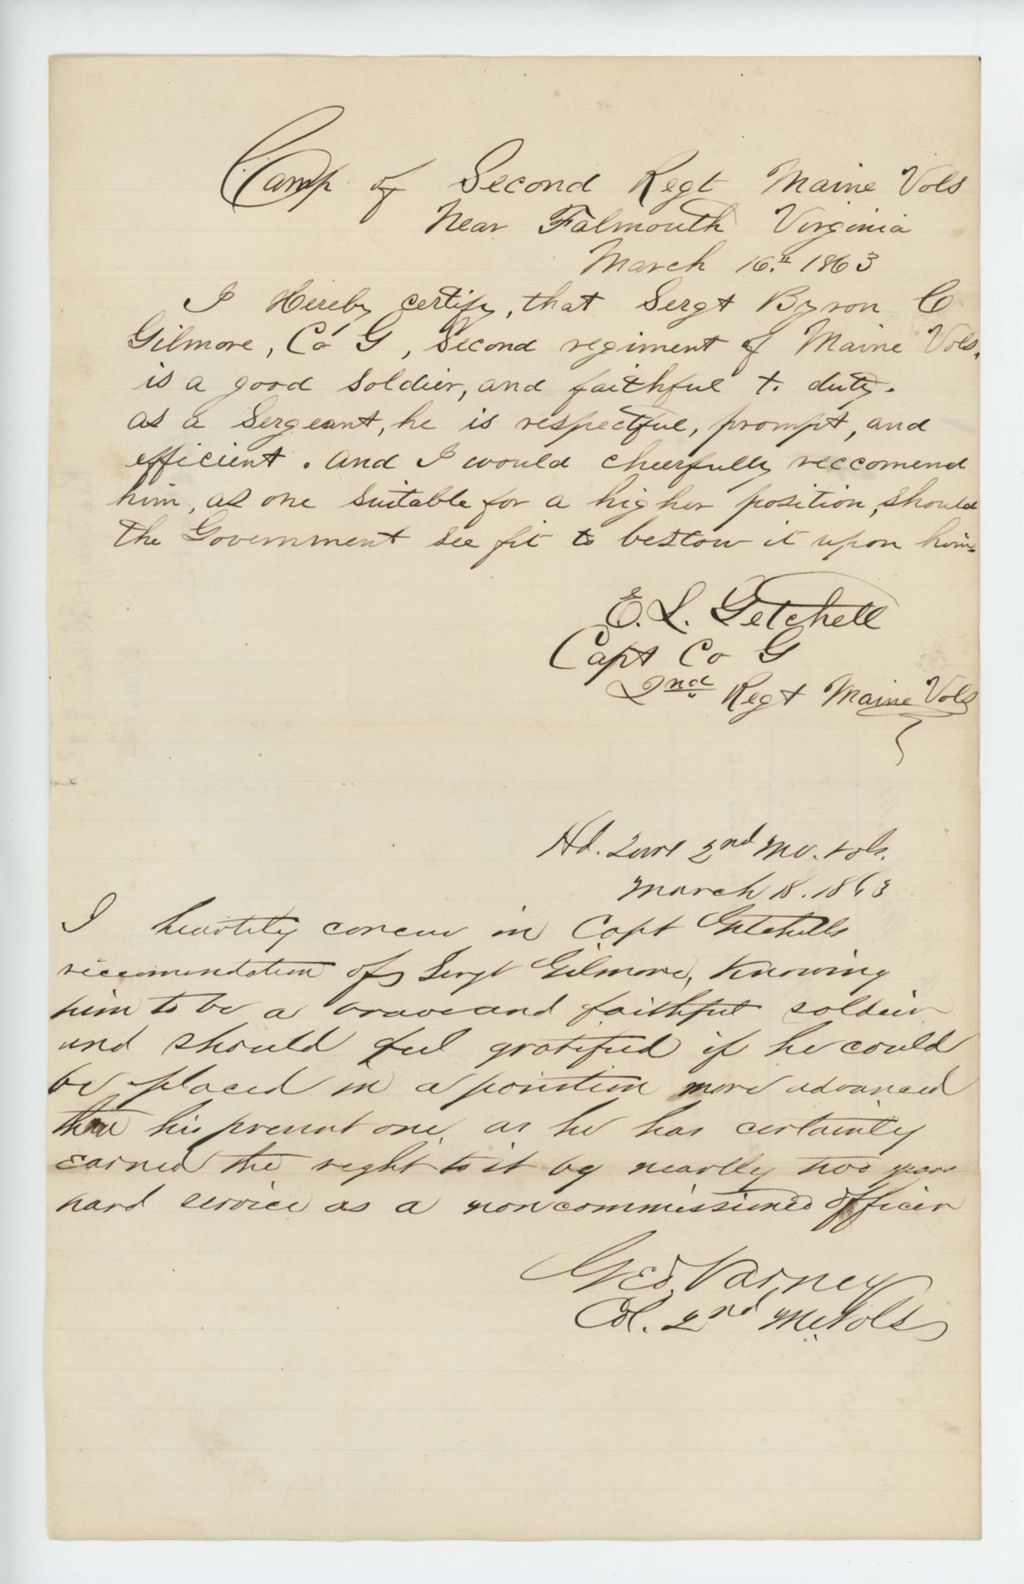 Camp of Second Regt Maine Vols
Near Falmouth Virginia
March 16.th 1863
I Hereby certify, that Sergt Byron C
Gilmore, Co G, Second regiment of Maine Vols.
is a good soldier, and faithful to duty.
as a Sergeant, he is respectful, prompt, and
efficient. and I would cheerfully reccomend
him, as one suitable for a higher position, should
the Government see fit to bestow it upon him.
E. L. Getchell
Capt Co G
2nd Regt Maine Vols
Hd. Qurs 2nd Me. Vols.
March 18. 1863
I heartily concur in Capt Getchells
reccomendation of Sergt Gilmore, Knowing
him to be a brave and faithful soldier
and should feel gratified if he could
be placed in a position more advanced
than his present one, as he has certainly
earned the right to it by nearly two years
hard service as a non commissioned officer
Geo. Varney
Col. 2nd Me Vols